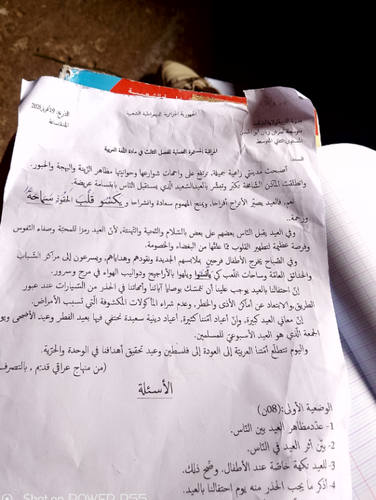 الجمهورية الجزائرية الديمقراطية الشعبية
المراقبة المستمرة الفصلية للفصل الثالث في مادة اللغة العربية
السند
أصبحت مدينتي زاهية جميلة، ترتفع على واجهات شوارعها وحوانيتها مظاهر الزّينة والبهجة والحبور.
وانطلقت المآذن الشّامخة تكبّر وتعطّر بالعيد السّعيد الّذي يستقبل النّاس بابتسامة عريضة.
نعم، فالعيد يصيّر الأتراح أفراحا، ويمنح المهموم سعادة وانشراحا و يكسو قلب الحقود سماحة
ورحمة.
وفي العيد يقبل النّاس بعضهم على بعض بالسّلام والتّحية والتّهنئة، لأنّ العيد رمز المحبّة وصفاء النّفوس
وفرصة عظيمة لتطهير القلوب ممّا علق بها من البغضاء والخصومة.
وفي الصّباح يخرج الأطفال فرحين بملابسهم الجديدة ونقودهم وهداياهم، ويسرعون إلى مراكز الشّباب
والحدائق العامّة وساحات اللّعب كي يلعبوا ويلهوا بالأراجيح ودواليب الهواء في مرح وسرور.
إنّ احتفالنا بالعيد يوجب علينا أن نتمسّك بوصايا آبائنا وأمّهاتنا في الحذر من السّيارات عند عبور
الطّريق والابتعاد عن أماكن الأذى والخطر، وعدم شراء المأكولات المكشوفة التي تسبب الأمراض.
إنّ معاني العيد كثيرة، وإنّ أعياد أمّتنا كثيرة، أعياد دينية سعيدة نحتفي فيها بعيد الفطر وعيد الأضحى ويو
الجمعة الّذي هو العيد الأسبوعيّ للمسلمين.
واليوم تتطلّع أمّتنا العربيّة إلى العودة إلى فلسطين وعيد تحقيق أهدافنا في الوحدة والحرّية.
(من منهاج عراقي قديم , بالتصرف
الأسئلة
الوضعية الأولى: (08ن)
1- عدّد مظاهر العيد بين النّاس.
2- بيّن أثر العيد في النّاس.
3- للعيد نكهة خاصّة عند الأطفال، وضّح ذلك.
4- اذكر ما يجب الحذر منه يوم احتفالنا بالعيد.
Shot on POWER P55